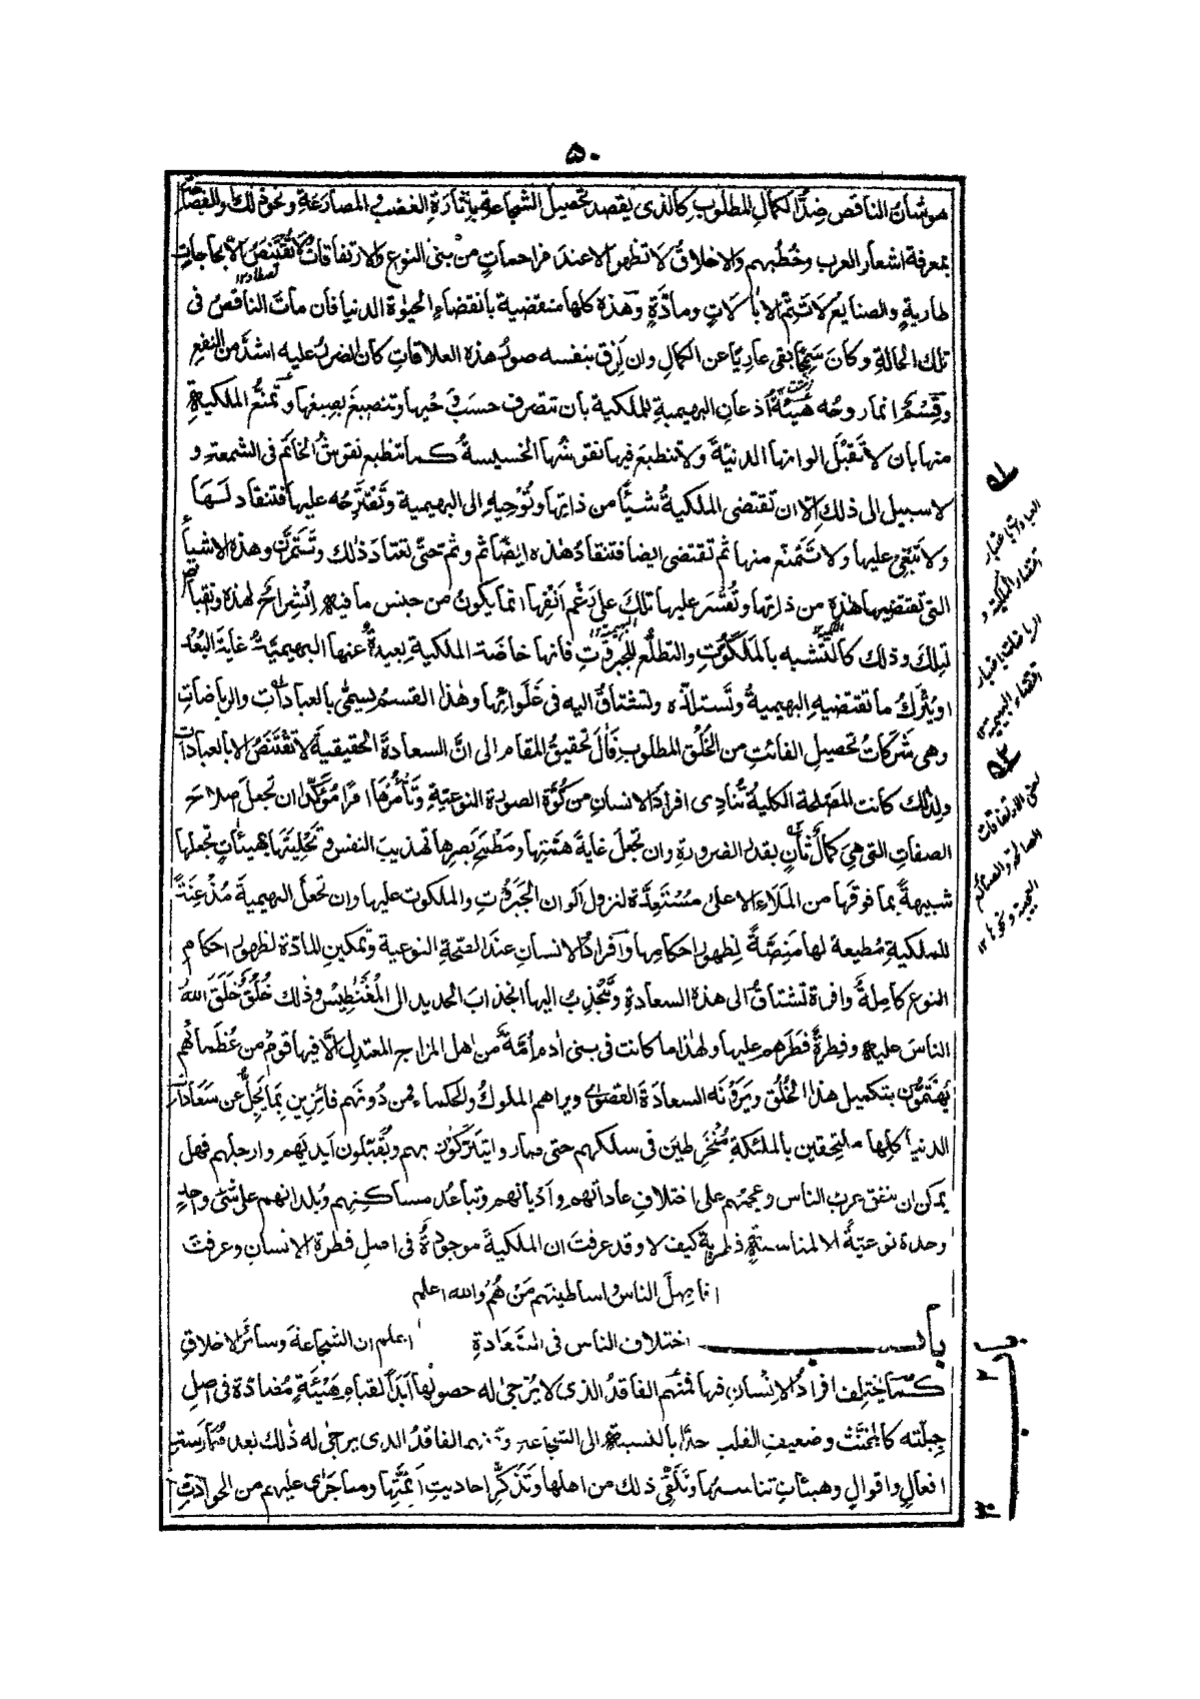 ۵۰
هو شان الناقص ضِدَّ الكمالِ المطلوب كالذى يقصد تحصيل الشجاعة باثارةِ الغضب فى المصارَعةِ ونحو ذلك والفصاحة
بمعرفة اشعار العرب وخُطَبِهم والاخلاقُ لا تظهر الا عند مزاحماتٍ من بنى النوع والارتفاقاتُ لا تُقْتَنَصُ الا بحاجاتٍ
طاريةٍ والصنايع لا تَتِمُّ الا بالاتٍ ومادَّةٍ وهذه كلها منقضية بانقضاءِ الحيٰوة الدنيا فان مات الناقصُ فى
تلك الحالةِ وكان سَمِجًا بقى عاريًا عن الكمال وان لَزِق بنفسه صور هذه العلاقاتِ كان الضررُ عليه اشدَّ من النفع
وقِسْمٌ انما روحُه هَيْئَةُ اذعانِ البهيمية للملكية بان تتصرف حسب وحيها وتنصبغ بصبغها وتمنُّعُ الملكيةِ
منها بان لا تَقْبَلَ الوانها الدنيّةَ ولا تنطبع فيها نقوشُها الخسيسةُ كما تنطبع نقوشُ الخاتَم فى الشمعةِ و
لا سبيل الى ذلك الا ان تقتضى الملكيةُ شيئًا من ذاتها وتُوحِيهِ الى البهيمية وتَقْتَرِحُه عليها فتنقاد لَهَا
ولا تَبْغِى عليها ولا تَتَمَنّع منها ثم تقتضى ايضا فتنقادُ هٰذه ايضًا ثم وثم حتّى تعتادَ ذلك وتَتَمَرَّن وهذه الاشياءُ
التى تقتضيها هٰذه من ذاتها وتُقْسَر عليها تلك على رَغْم اَنْفِها انما يكونُ من جنس ما فيه اِنْشِراحٌ لهذه وانقباضٌ
لتلك وذلك كالتَّشبه بالمَلَكُوْتِ والتطلُّع للجَبَرُوْتِ فانها خاصّة الملكية بعيدةٌ عنها البهيميّةُ غاية البُعْد
او يَتْرُكُ ما تقتضيهِ البهيميةُ وتَستلذّه وتشتاقُ اليه فى غَلَوائِها وهٰذا القسمُ يسمّى بالعباداتِ والرياضاتِ
وهى شَرَكاتُ تحصيلِ الفائتِ من الخُلُق المطلوب فاٰل تحقيقُ المقام الى انَّ السعادةَ الحقيقيةَ لا تُقْتَنَصُ الا بالعباداتِ
ولذلك كانت المَصْلحة الكليةُ تُنادِى افرادَ الانسانِ من كُوَّةِ الصورة النوعيّةِ وتَأمُرُها امرًا مُؤكَّدًا ان تجعلَ صلاحَ
الصفاتِ التى هِىَ كمالٌ ثانٍ بقدر الضرورةِ وان تجعلَ غايةَ هِمَّتِها ومَطْمَحَ بصرِها تهذيبَ النفس وتَحْلِيَتَها بهيئاتٍ تجعلها
شبيهةً بما فوقَها من المَلَاءِ الاعلى مُسْتَعِدَّة لنزول اكوانِ الجَبَرُوْتِ والملكوت عليها وان تجعل البهيميةَ مُذْعِنَةً
للملكيةِ مُطيعة لها مَنِصَّةً لظهور احكامها وافرادُ الانسانِ عند الصحّة النوعية وتمكينِ المادّة لظهور احكام
النوع كامِلةً وافرة تشتاقُ الى هذه السعادةِ وتنجذِبُ اليها انجذابَ الحديد الى المُغْنَطِيْس وذلك خُلُقٌ خَلَقَ اللهُ
الناسَ عليه وفِطرةٌ فَطَرَهم عليها ولهٰذا ما كانت فى بنى اٰدم اُمّةٌ من اهل المزاج المعتدل الّا فيها قومٌ من عُظَمائهم
يَهْتَمُّون بتكميل هذا الخُلُق ويَرَوْنَه السعادَة القصوىٰ ويراهم الملوكُ والحكماء فمن دُونَهم فائِزين بما يَجِلُّ عن سَعَاداتِ
الدنيا كلِّها ملتحِقين بالملٰئكةِ مُنْخَرِطينَ فى سلكهم حتى صاروا يتبَرَّكُونَ بهم ويُقَبّلون اَيديَهم وارجلَهم فهل
يمكن ان يتفق عربُ الناس وعجمُهم على اختلافِ عاداتهم واَديانهم وتباعُد مساكنِهم وبُلدانهم على شئٍ واحدٍ
وحدة نوعيّةً الا لمناسبةٍ فطريةٍ كيف لا وقد عرفتَ ان الملكيةَ موجودةٌ فى اصلِ فطرة الانسانِ وعرفتَ
افاضِلَ الناس واساطينَهم مَنْ هُمْ والله اعلم
باب اختلاف الناس فى السَّعَادةِ اعلم ان الشجاعةَ وسائرَ الاخلاقِ
كما يختلف افرادُ الانسانِ فيها فمنهم الفاقدُ الذى لا يُرْجىٰ له حصولُها اَبَدًا لقيامِ هَيْئَةٍ مُضادّة فى اصلِ
جِبِلّته كالمُخَنَّث وضعيفِ القلب جدًّا بالنسبةِ الى الشجاعة ومنهم الفاقدُ الذى يرجىٰ له ذٰلك بعد مُمارسةِ
افعالٍ واقوالٍ وهيئاتٍ تناسبُها وتَلَقِّى ذلك من اهلها وتَذَكُّرِ احاديثِ اَئِمَّتِها وما جَرىٰ عليهم من الحوادثِ
العبادات باعتبار
اقتضاء الملكية و
الرياضات باعتبار
اقتضاء البهيمية
يعنى الارتفاقات
الصالحة والصنائع
العجيبة ونحوها ١٢